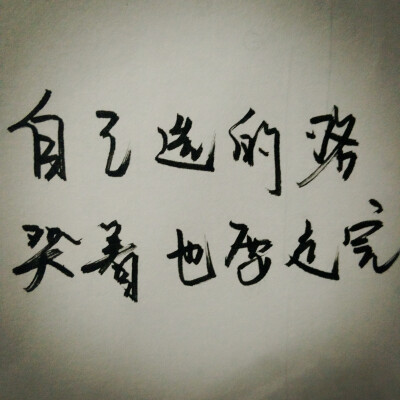 自己选的路
哭着也要走完